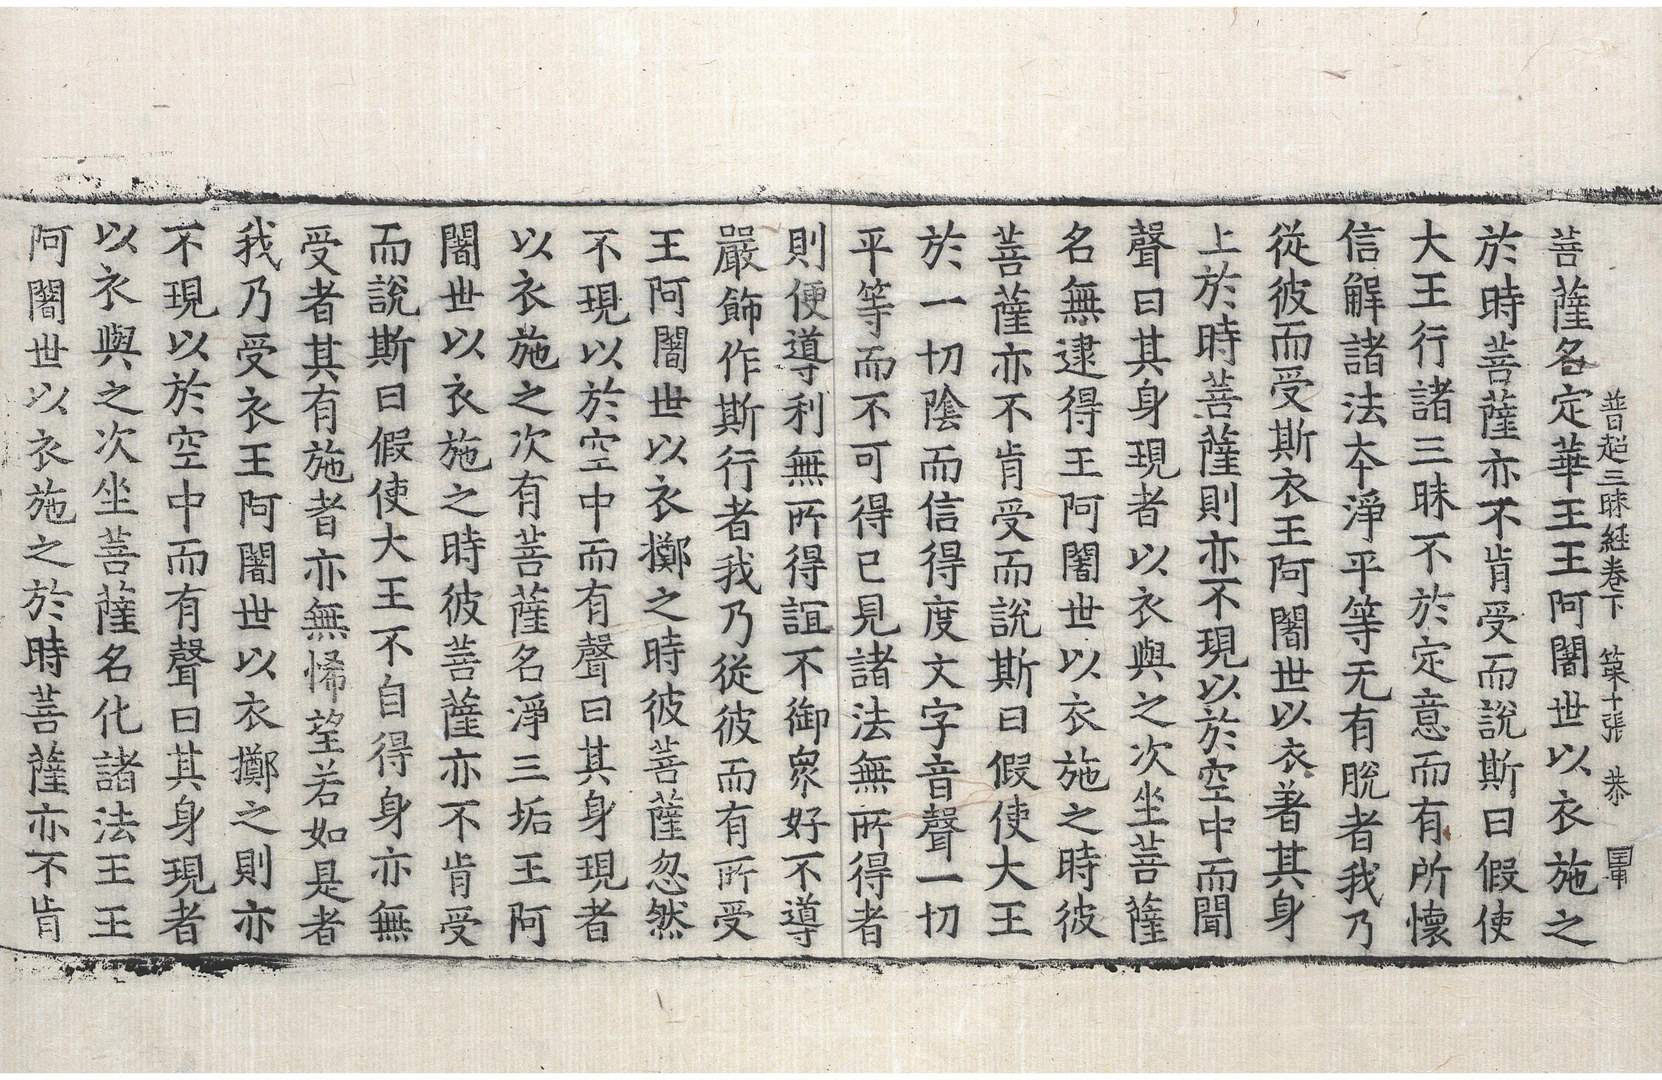 普超三昧経卷下 第十張 恭
菩薩名定華王王阿闍世以衣施之
於時菩薩亦不肯受而說斯曰假使
大王行諸三昧不於定意而有所懷
信解諸法本淨平等无有脫者我乃
從彼而受斯衣王阿闍世以衣著其身
上於時菩薩則亦不現以於空中而聞
聲曰其身現者以衣與之次坐菩薩
名無逮得王阿闍世以衣施之時彼
菩薩亦不肯受而說斯曰假使大王
於一切陰而信得度文字音聲一切
平等而不可得已見諸法無所得者
則便導利無所得誼不御衆好不導
嚴飾作斯行者我乃從彼而有所受
王阿闍世以衣擲之時彼菩薩忽然
不現以於空中而有聲曰其身現者
以衣施之次有菩薩名淨三垢王阿
闍世以衣施之時彼菩薩亦不肯受
而說斯曰假使大王不自得身亦無
受者其有施者亦無悕望若如是者
我乃受衣王阿闍世以衣擲之則亦
不現以於空中而有聲曰其身現者
以衣與之次坐菩薩名化諸法王王
阿闍世以衣施之於時菩薩亦不肯